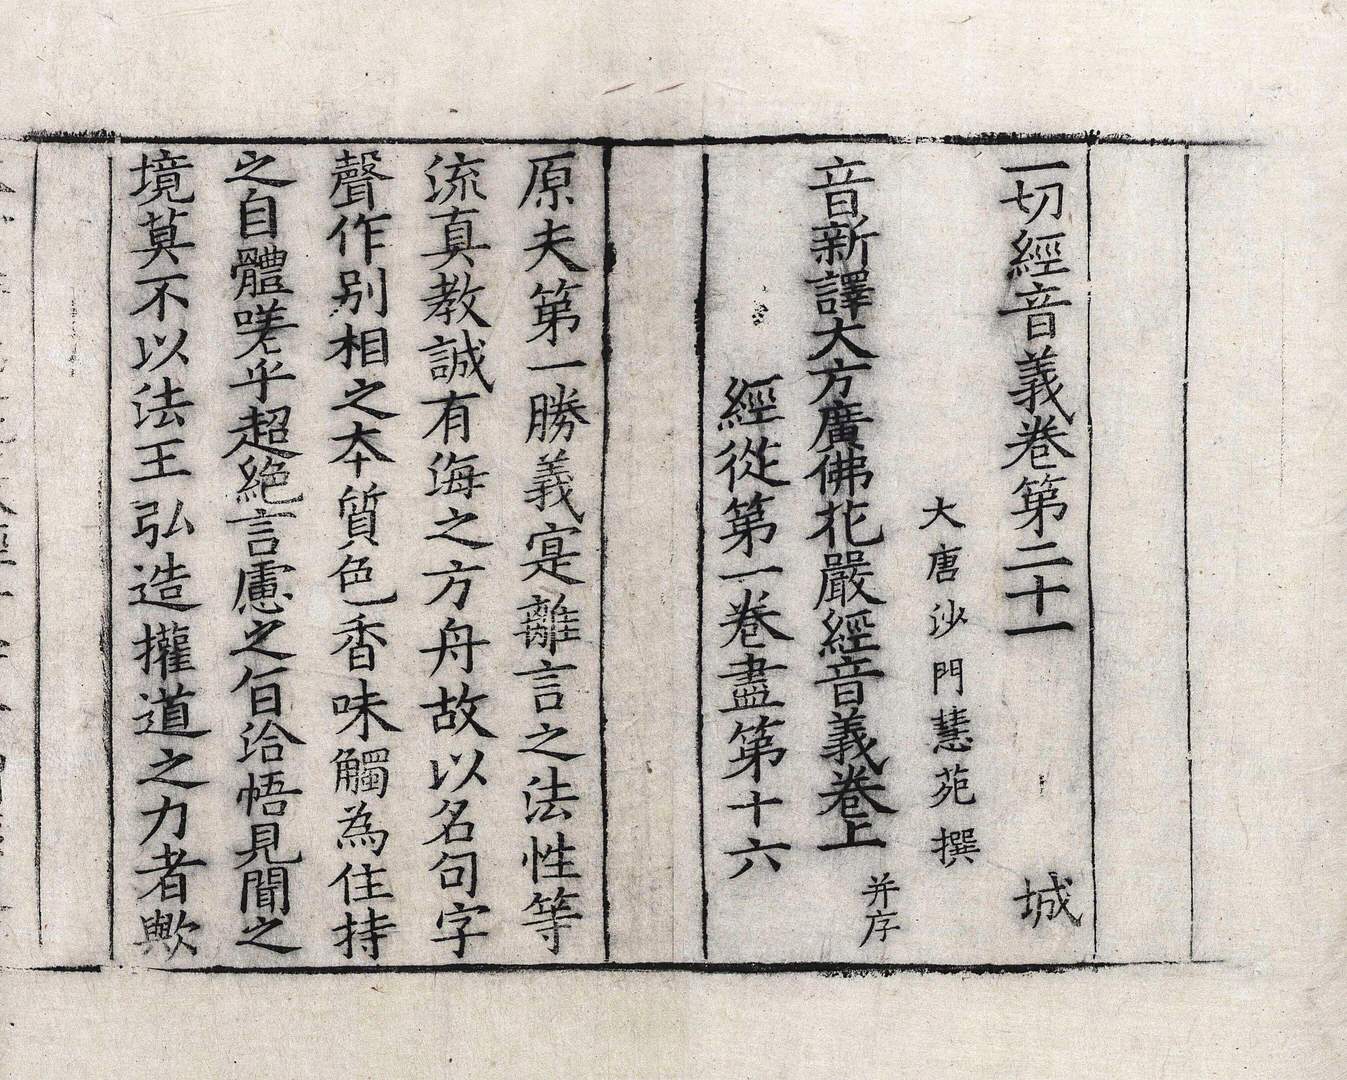 一切經音義卷第二十一 城
大唐沙門慧苑撰
音新譯大方廣佛花嚴經音義卷上 并序
經從第一卷盡第十六
原夫第一勝義寔離言之法性等
流真教誠有海之方舟故以名句字
聲作別相之本質色香味觸為住持
之自體嗟乎超絶言慮之佰洽悟見聞之
境莫不以法王弘造攉道之力者歟